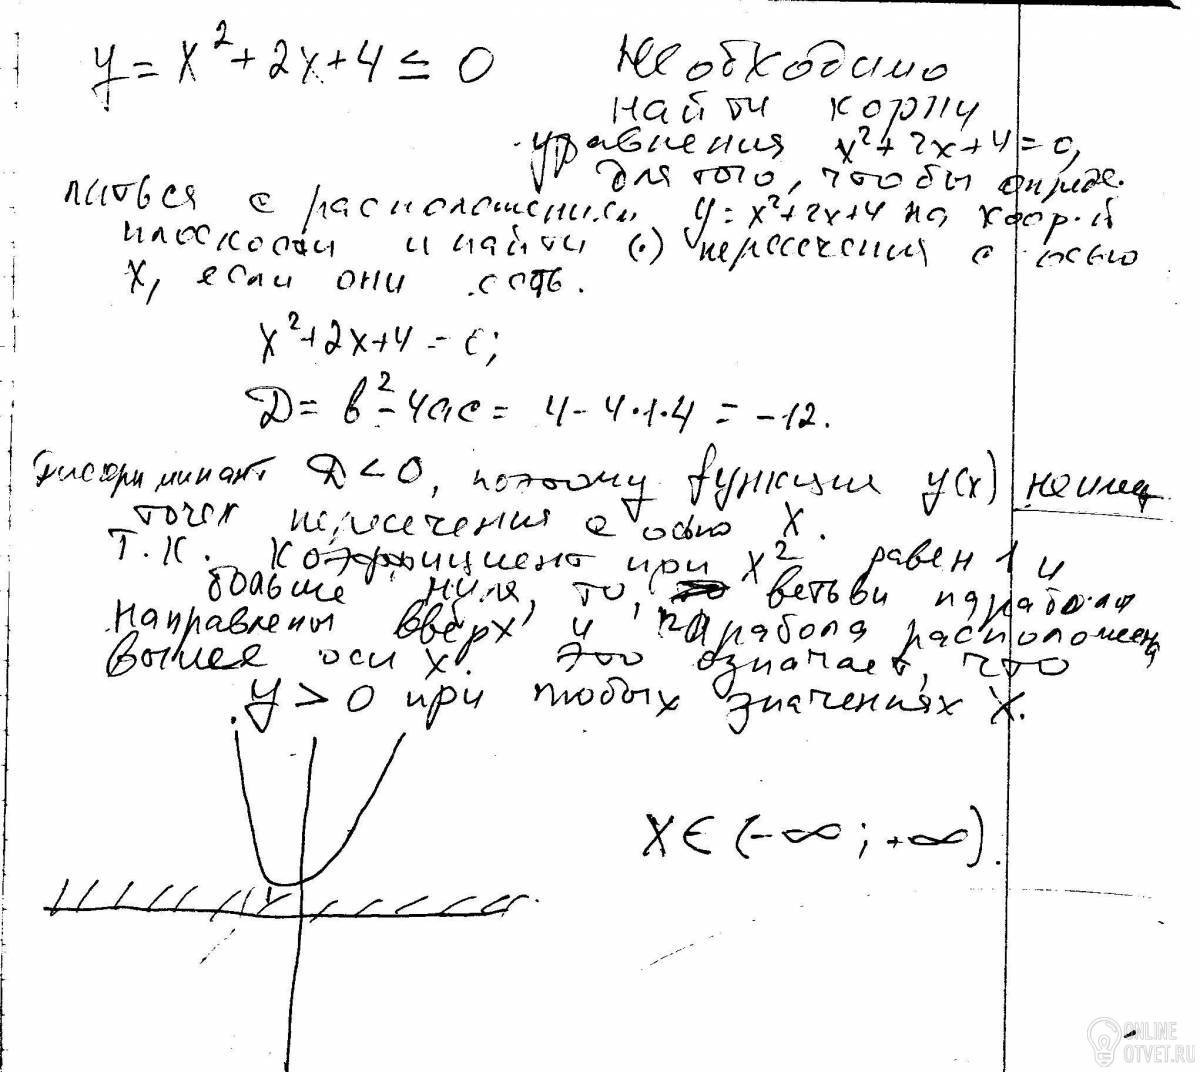 y = x² + 2x + 4 ≤ 0
Необходимо
найти корни
уравнения x² + 2x + 4 = 0,
для того, чтобы опреде-
литься с расположением y = x² + 2x + 4 на коор. й
плоскости и найти (·) пересечения с осью
x, если они есть.
x² + 2x + 4 = 0;
D = b² - 4ac = 4 - 4·1·4 = -12.
Дискриминант D < 0, поэтому функция y(x) не имеет
точек пересечения с осью x.
Т.к. коэффициент при x² равен 1 и
больше нуля, то, ветьви параболы
направлены вверх и парабола расположена
выше оси x. Это означает, что
y > 0 при любых значениях x.
x ∈ (-∞; +∞).
ONLINE
OTVET.RU